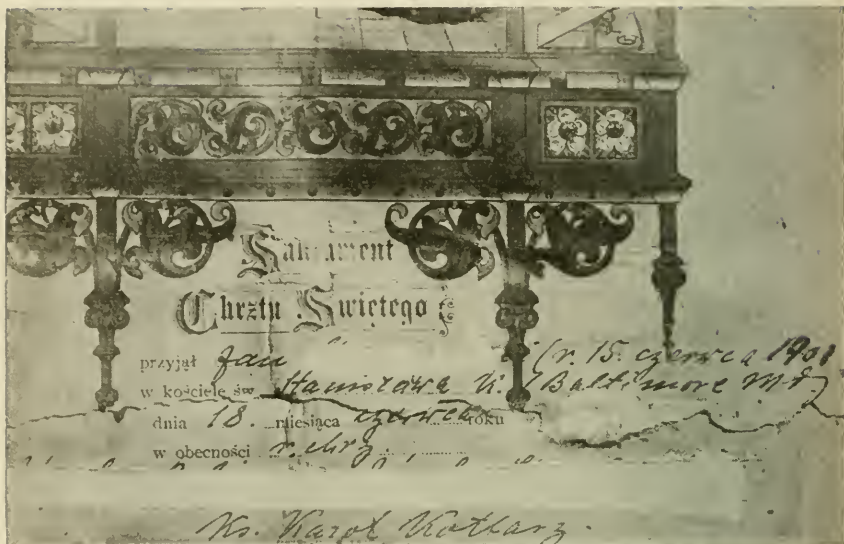 Sakrament
Chrztu Swiętego
przyjął Jan (r. 15. czerwca 1901
w kościele św. Stanisława K. (Baltimore Md)
dnia 18. miesiąca czerwca roku
w obecności r. chrz.
Ks. Karol Kotlarz.